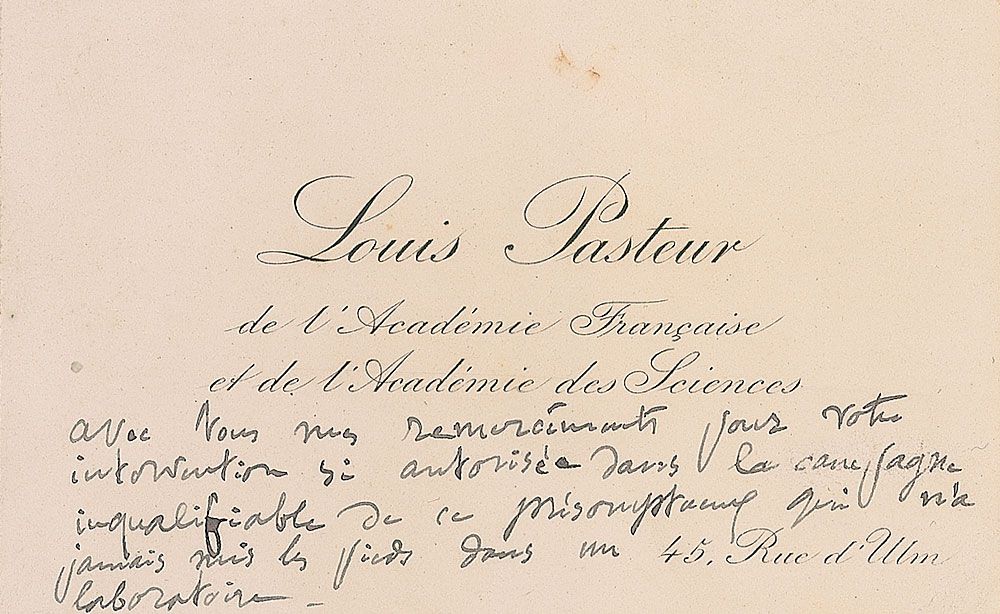 Louis Pasteur
de l'Académie Française
et de l'Académie des Sciences
avec tous mes remerciments pour votre
intervention si autorisée dans la campagne
inqualifiable de ce présomptueux qui n'a
jamais mis les pieds dans un 45, Rue d'Ulm
laboratoire.